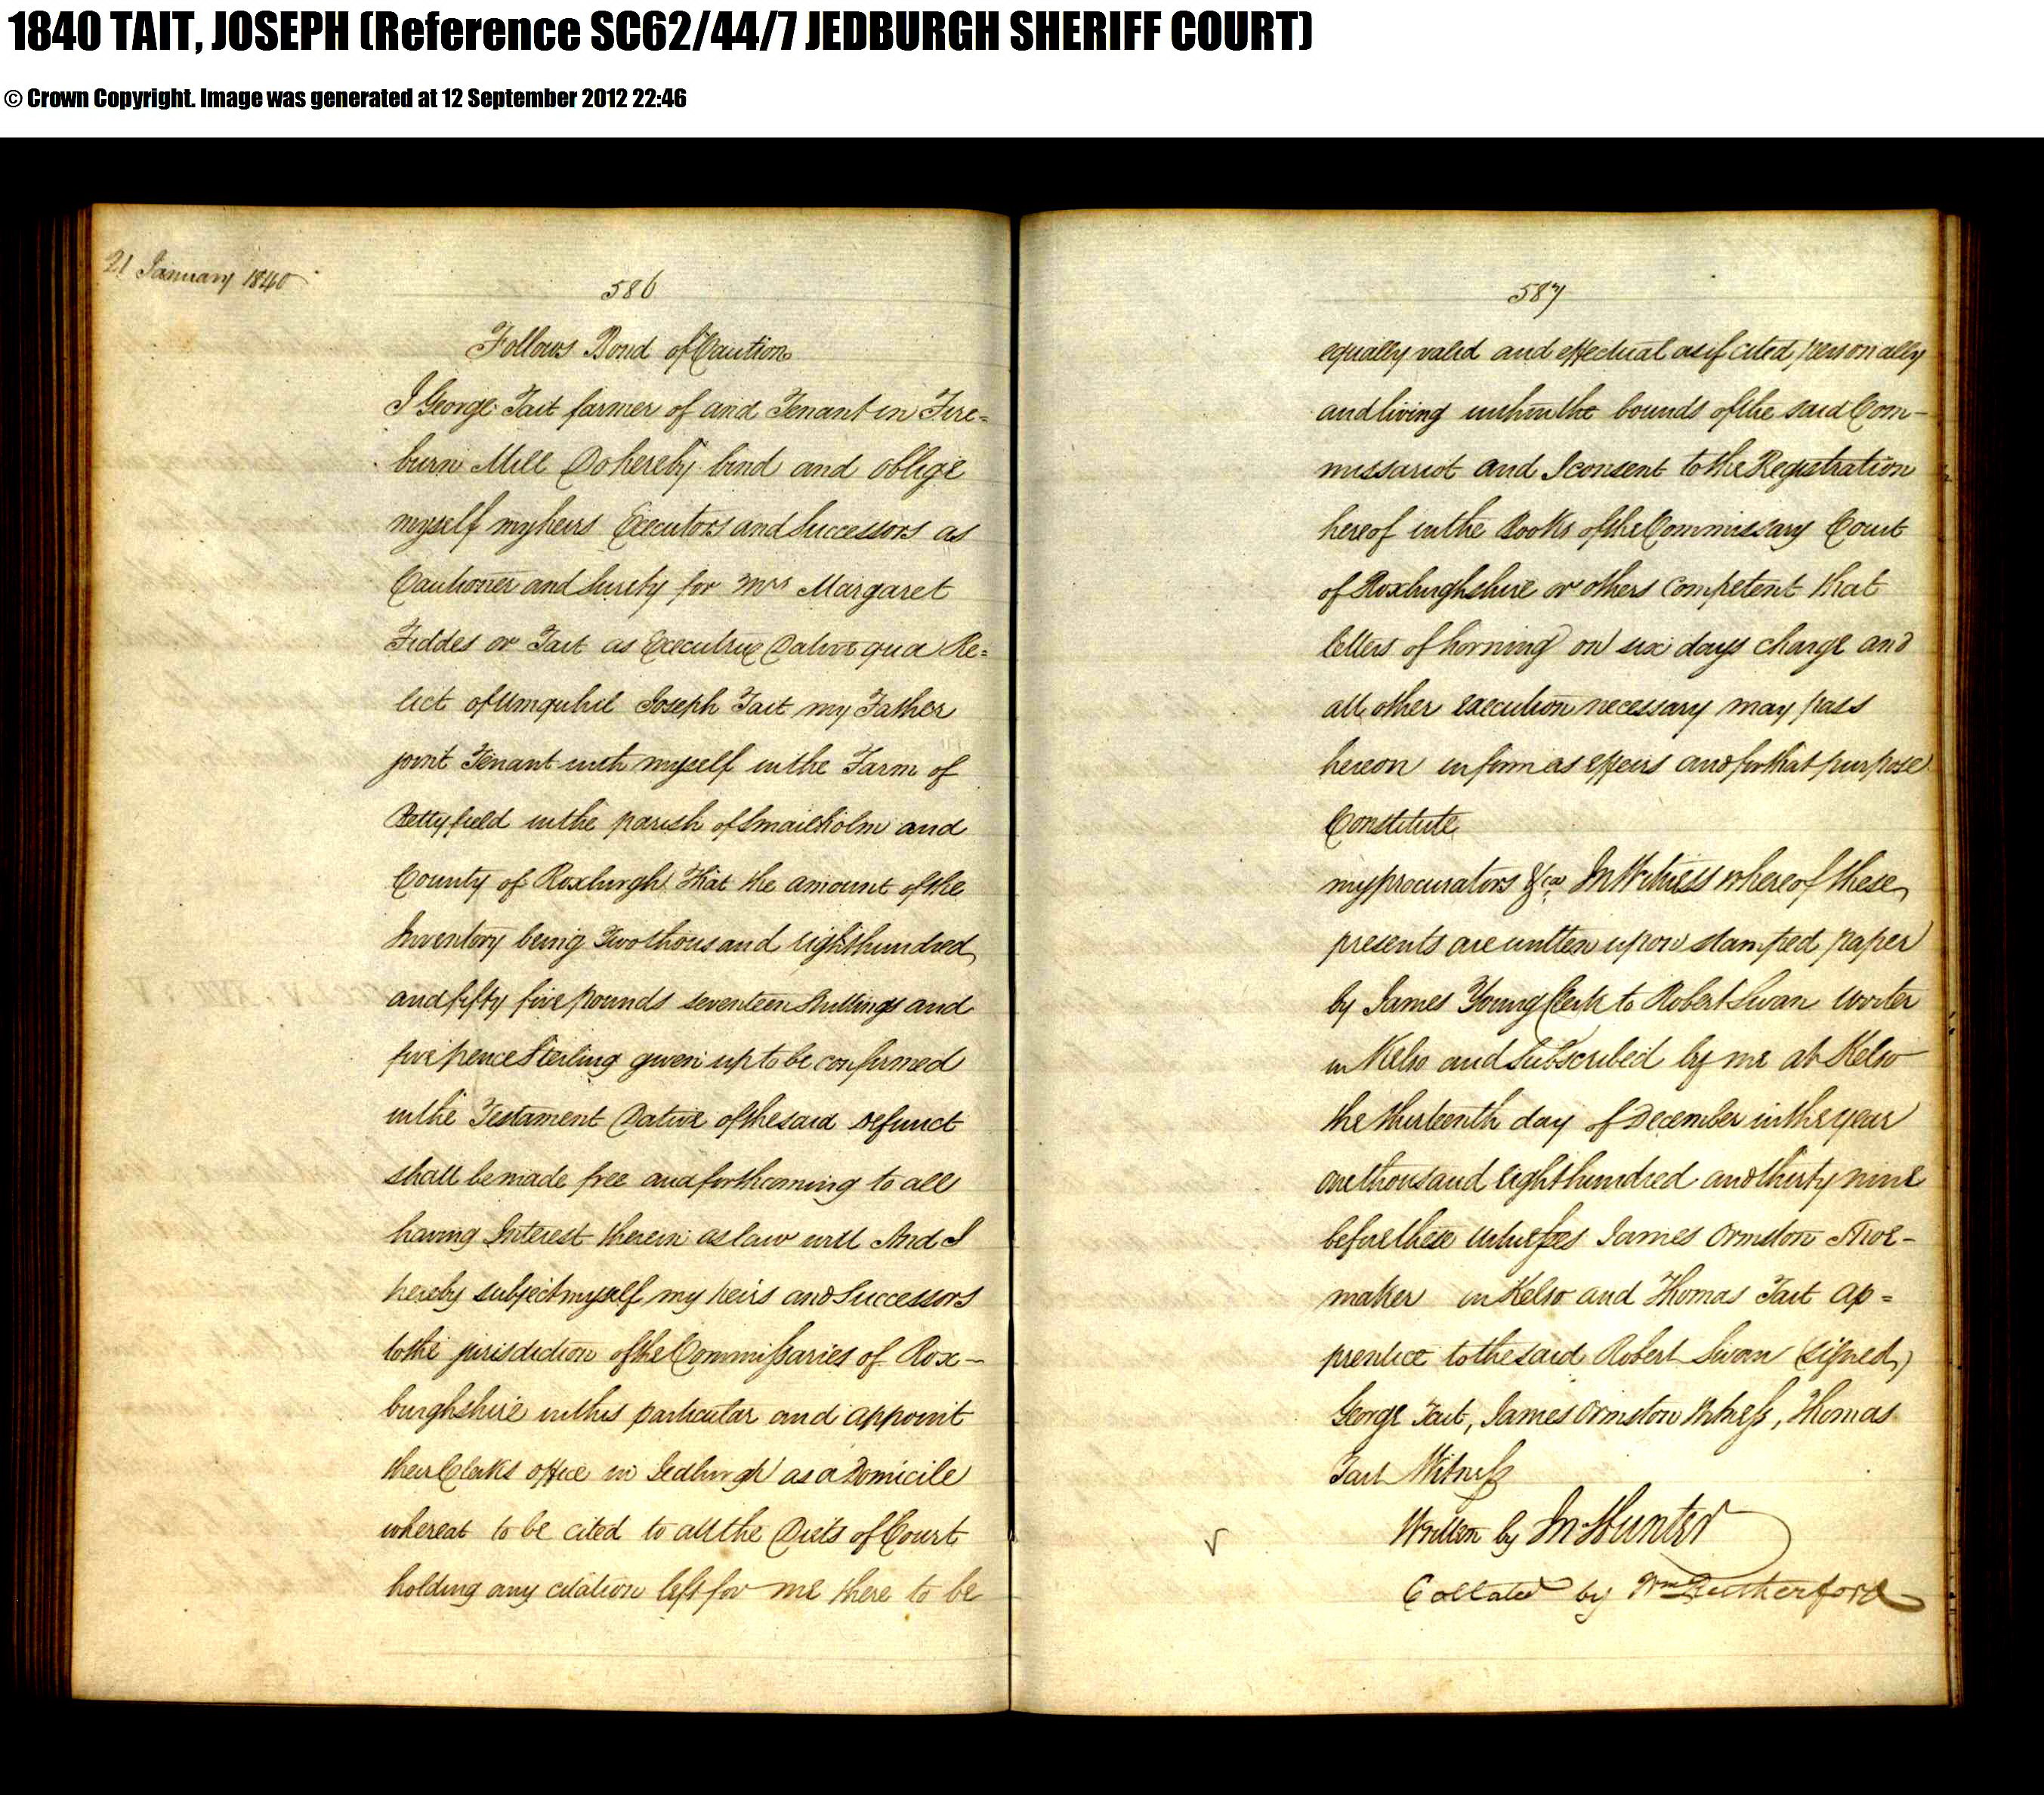 1840 TAIT, JOSEPH (Reference SC62/44/7 JEDBURGH SHERIFF COURT)
© Crown Copyright. Image was generated at 12 September 2012 22:46
21 January 1840
586
Follows Bond of Caution
I George Tait farmer of and Tenant in Fire=
burn Mill Do hereby bind and oblige
myself my heirs Executors and Successors as
Cautioner and Surety for Mrs Margaret
Fiddes or Tait as Executrix Dative qua Re=
lict of umquhil Joseph Tait my Father
joint Tenant with myself in the Farm of
Bettyfield in the parish of Smailholm and
County of Roxburgh That the amount of the
Inventory being Two thousand eight hundred
and fifty five pounds seventeen Shillings and
five pence Sterling given up to be confirmed
in the Testament Dative of the said Defunct
shall be made free and forthcoming to all
having Interest therein as law will And I
hereby subject myself my heirs and Successors
to the jurisdiction of the Commissaries of Rox-
burghshire in this particular and appoint
their Clerks office in Jedburgh as a Domicile
whereat to be cited to all the Diets of Court
holding any citation left for me there to be
587
equally valid and effectual as if cited personally
and living within the bounds of the said Com-
missariot and I consent to the Registration
hereof in the Books of the Commissary Court
of Roxburghshire or others competent that
letters of horning on six days charge and
all other execution necessary may pass
hereon in form as effeirs and for that purpose
Constitute
my procurators &ca In Witness whereof these
presents are written upon stamped paper
by James Young Clerk to Robert Swan Writer
in Kelso and Subscribed by me at Kelso
the thirteenth day of December in the year
one thousand eight hundred and thirty nine
before these Witnesses James Ormston Shoe-
maker in Kelso and Thomas Tait ap=
prentice to the said Robert Swan (Signed)
George Tait, James Ormston Witness, Thomas
Tait Witness
Written by Jn Hunter
Collated by Wm Rutherford